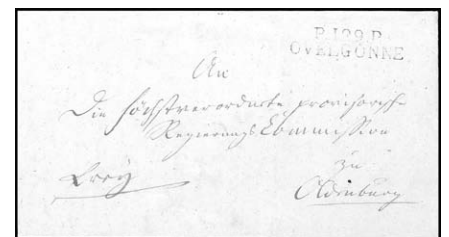 P.129.P.
OVELGÖNNE
An
Die höchstverordnete provisorische
Regierungs Commission
zu
Oldenburg